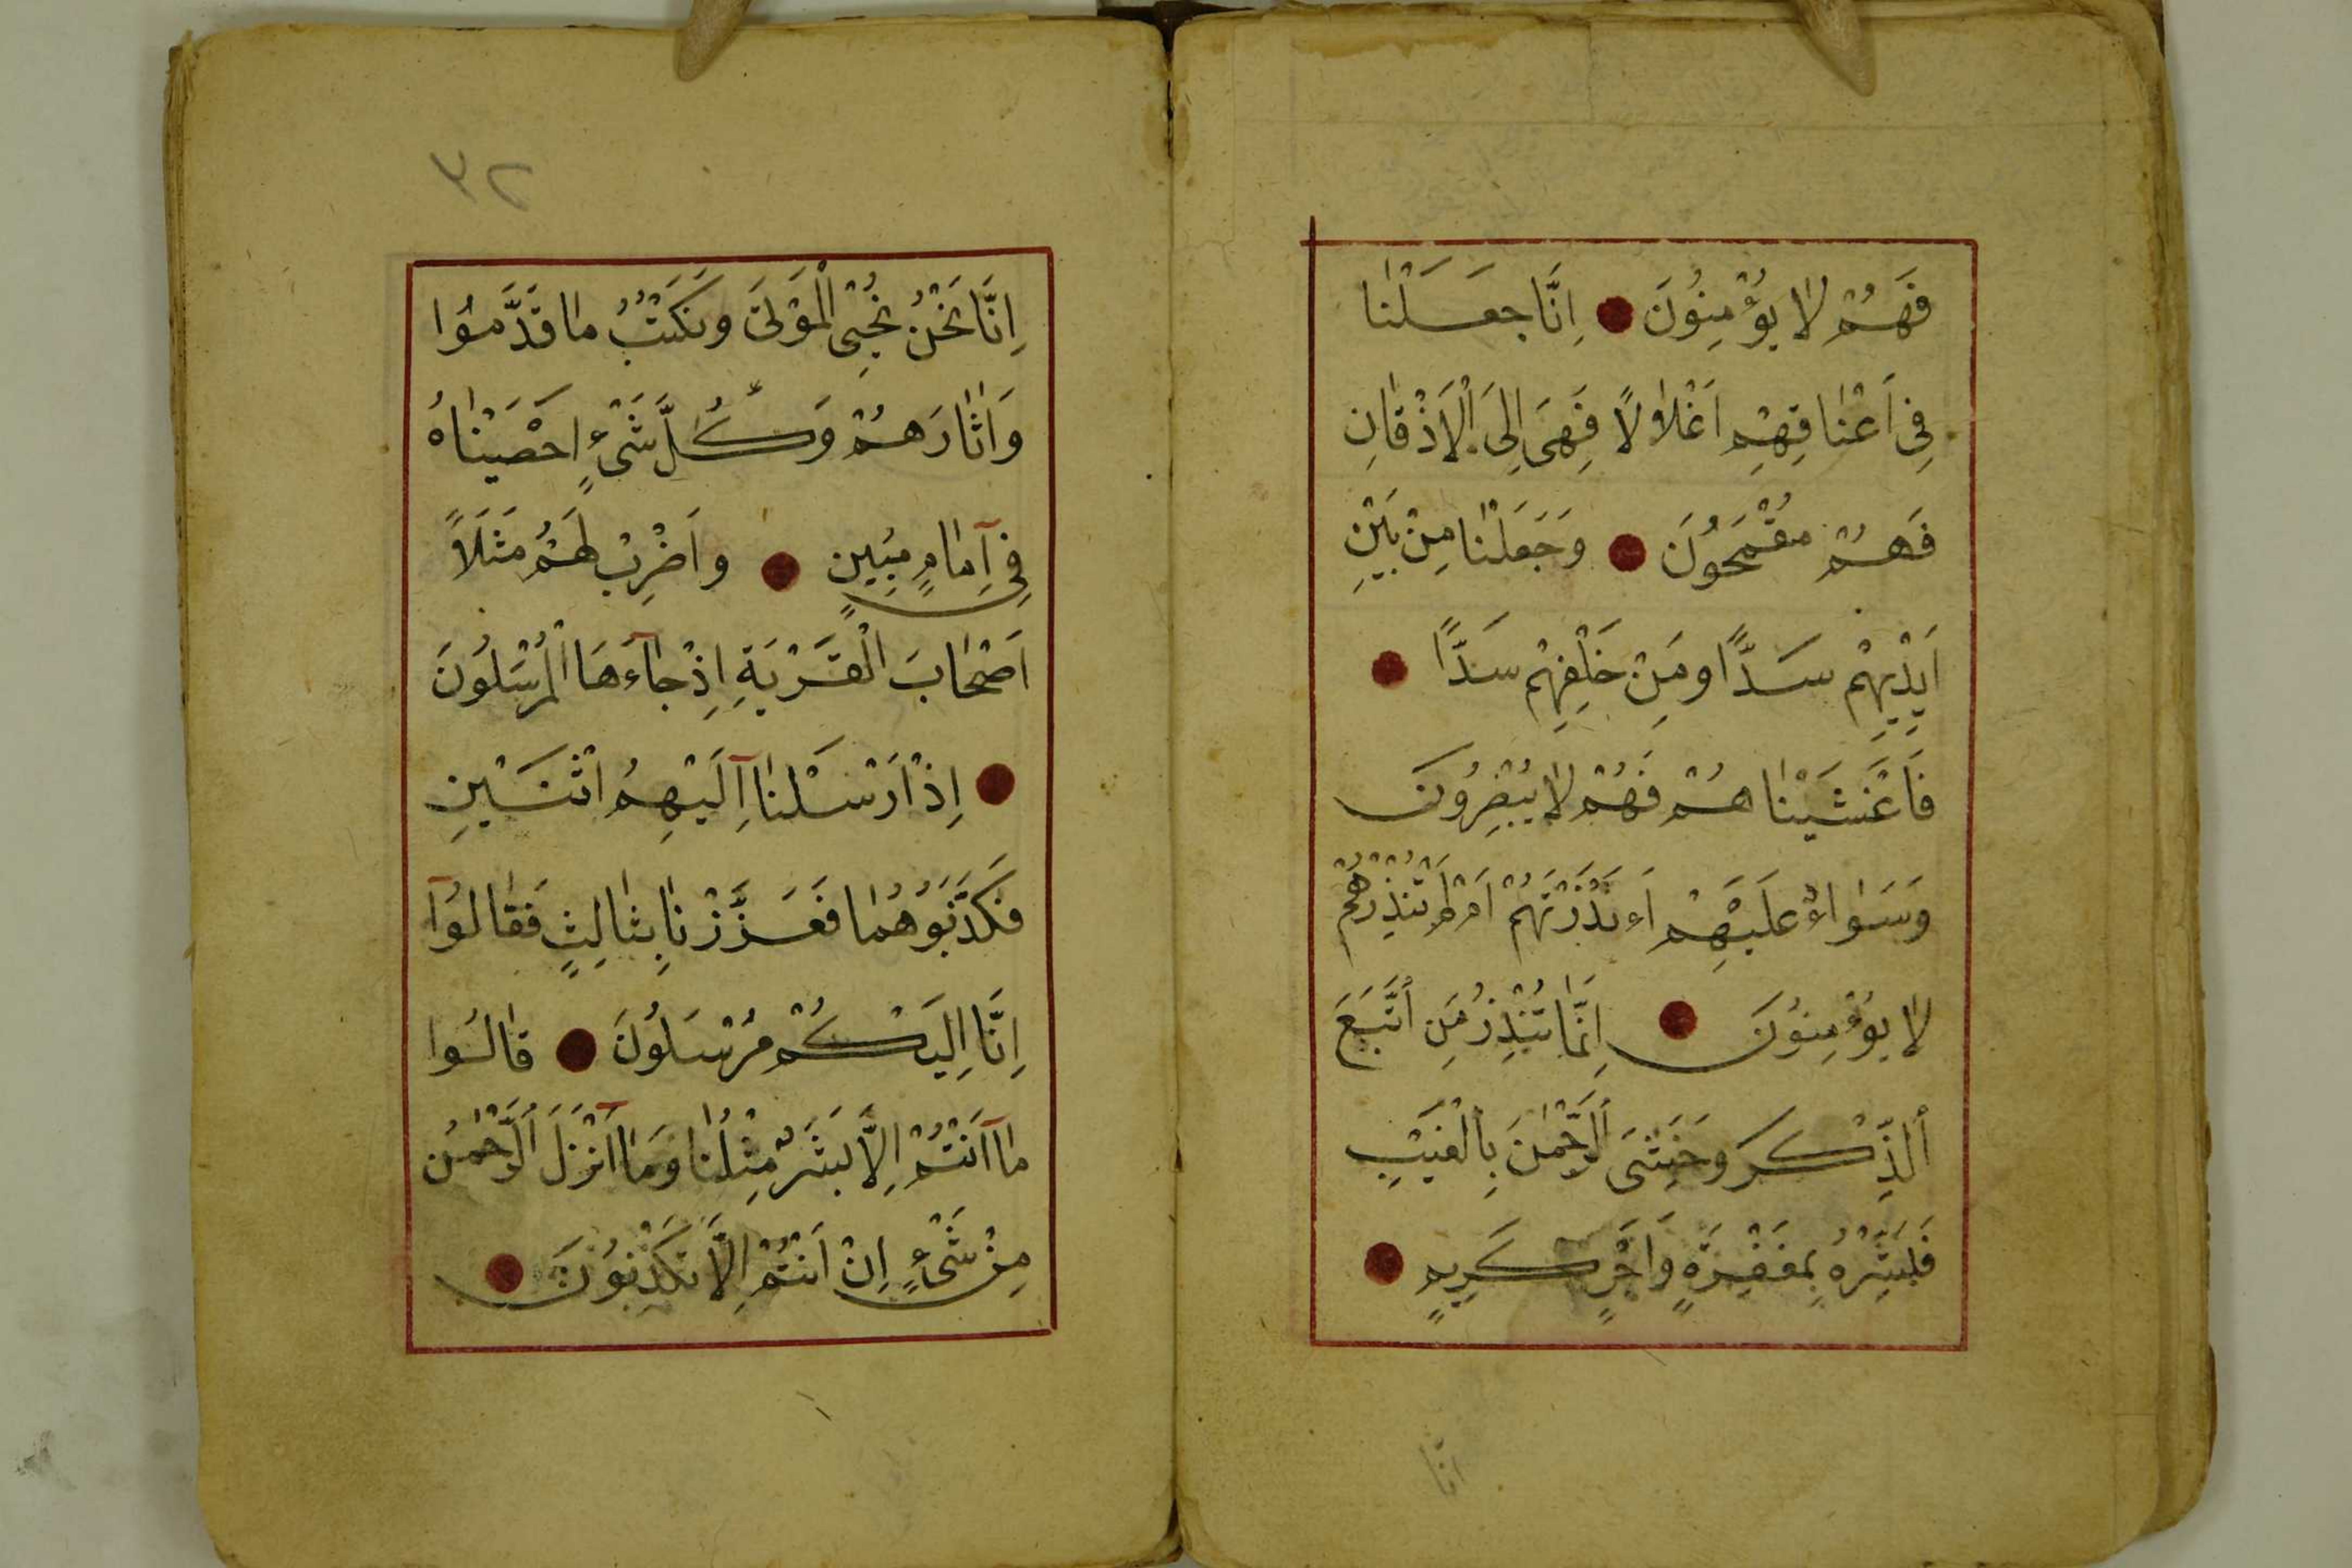 فَهُمْ لَا يُؤْمِنُونَ ● اِنَّا جَعَلْنَا
فِي اَعْنَاقِهِمْ اَغْلَالًا فَهِيَ اِلَى الْاَذْقَانِ
فَهُمْ مُقْمَحُونَ ● وَجَعَلْنَا مِنْ بَيْنِ
اَيْدِيهِمْ سَدًّا وَمِنْ خَلْفِهِمْ سَدًّا ●
فَاَغْشَيْنَاهُمْ فَهُمْ لَا يُبْصِرُونَ
وَسَوَاءٌ عَلَيْهِمْ اَءَنْذَرْتَهُمْ اَمْ لَمْ تُنْذِرْهُمْ
لَا يُؤْمِنُونَ ● اِنَّمَا تُنْذِرُ مَنِ اتَّبَعَ
الذِّكْرَ وَخَشِيَ الرَّحْمٰنَ بِالْغَيْبِ
فَبَشِّرْهُ بِمَغْفِرَةٍ وَاَجْرٍ كَرِيمٍ ●
انّا
٣٢
اِنَّا نَحْنُ نُحْيِي الْمَوْتَى وَنَكْتُبُ مَا قَدَّمُوا
وَاٰثَارَهُمْ وَكُلَّ شَيْءٍ اَحْصَيْنَاهُ
فِي اِمَامٍ مُبِينٍ ● وَاضْرِبْ لَهُمْ مَثَلًا
اَصْحَابَ الْقَرْيَةِ اِذْ جَاءَهَا الْمُرْسَلُونَ
● اِذْ اَرْسَلْنَا اِلَيْهِمُ اثْنَيْنِ
فَكَذَّبُوهُمَا فَعَزَّزْنَا بِثَالِثٍ فَقَالُوا
اِنَّا اِلَيْكُمْ مُرْسَلُونَ ● قَالُوا
مَا اَنْتُمْ اِلَّا بَشَرٌ مِثْلُنَا وَمَا اَنْزَلَ الرَّحْمٰنُ
مِنْ شَيْءٍ اِنْ اَنْتُمْ اِلَّا تَكْذِبُونَ ●